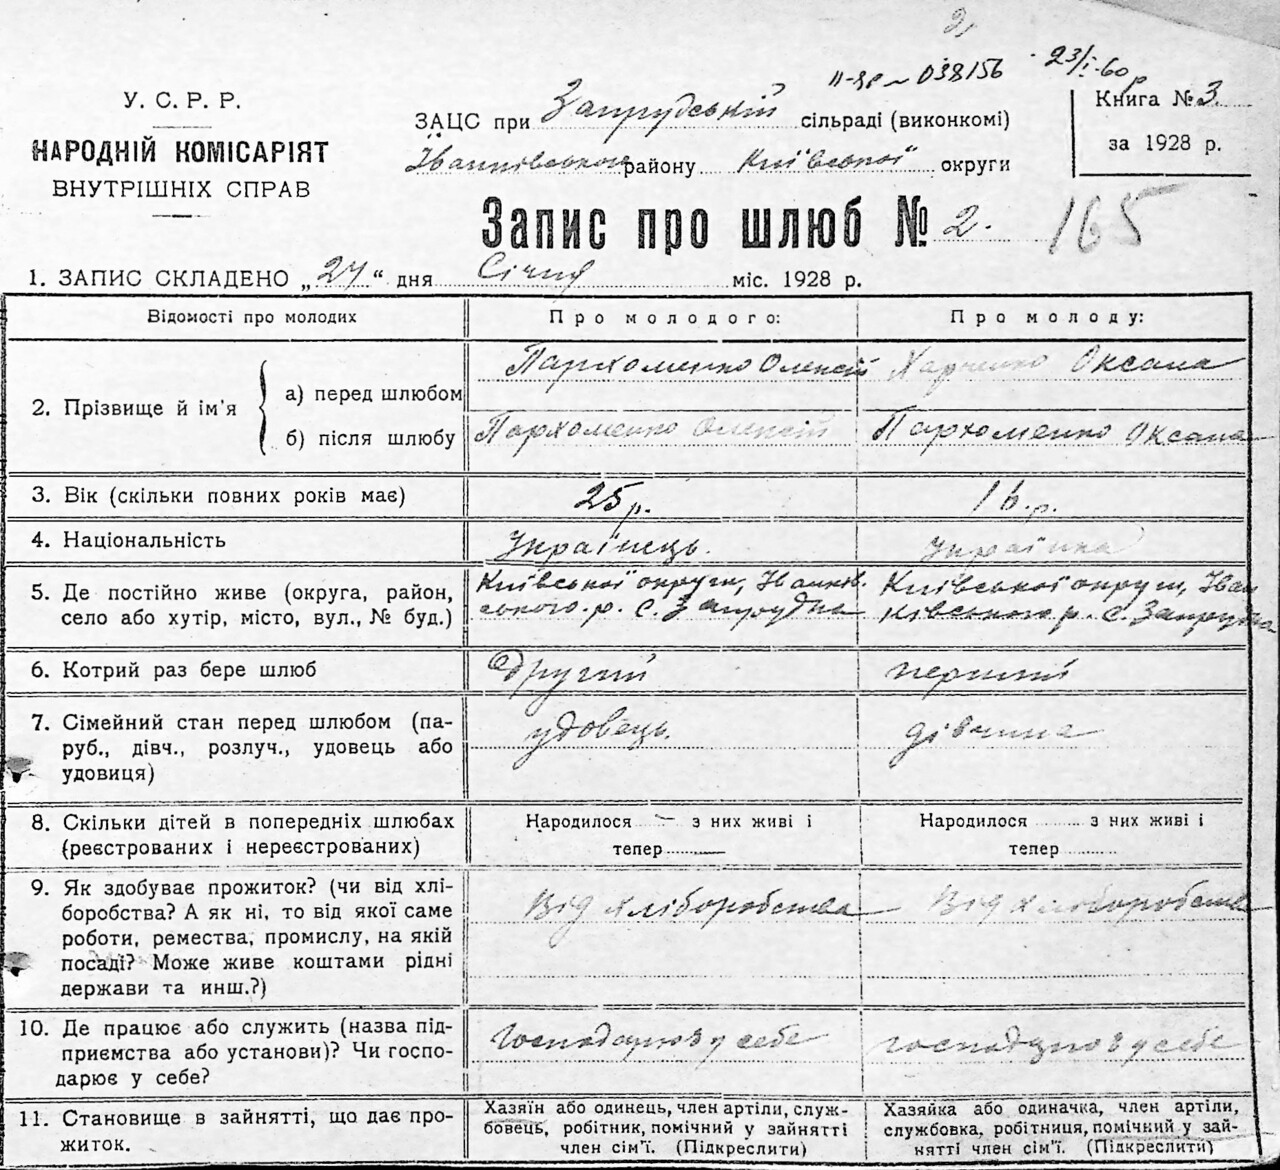 II-яр № 038156 23/I-60 р
У. С. Р. Р.
НАРОДНІЙ КОМІСАРІЯТ
ВНУТРІШНІХ СПРАВ
ЗАЦС при Запрудській сільраді (виконкомі)
Іванківського району Київської округи
Книга № 3
за 1928 р.
Запис про шлюб № 2. 165
1. ЗАПИС СКЛАДЕНО „27“ дня Січня міс. 1928 р.
Відомості про молодих Про молодого: Про молоду:
2. Прізвище й ім'я
а) перед шлюбом Пархоменко Олексій Харченко Оксана
б) після шлюбу Пархоменко Олексій Пархоменко Оксана
3. Вік (скільки повних років має) 25 р. 16. р.
4. Національність Українець. Українка
5. Де постійно живе (округа, район,
село або хутір, місто, вул., № буд.)
Київської округи, Іванків.
ського. р. с. Запрудка
Київської округи, Іван
ківського р. с. Запрудка
6. Котрий раз бере шлюб Другий перший
7. Сімейний стан перед шлюбом (па-
руб., дівч., розлуч., удовець або
удовиця)
удовець. дівчина
8. Скільки дітей в попередніх шлюбах
(реєстрованих і нереєстрованих)
Народилося — з них живі і
тепер —
Народилося з них живі і
тепер
9. Як здобуває прожиток? (чи від хлі-
боробства? А як ні, то від якої саме
роботи, ремества, промислу, на якій
посаді? Може живе коштами рідні
держави та инш.?)
Від хліборобства Від хліборобства
10. Де працює або служить (назва під-
приємства або установи)? Чи госпо-
дарює у себе?
Господарює у себе господарює у себе
11. Становище в зайнятті, що дає про-
житок.
Хазяїн або одинець, член артіли, служ-
бовець, робітник, помічний у зайнятті
член сім'ї. (Підкреслити)
Хазяйка або одиначка, член артіли,
службовка, робітниця, помічний у зай-
нятті член сім'ї. (Підкреслити)